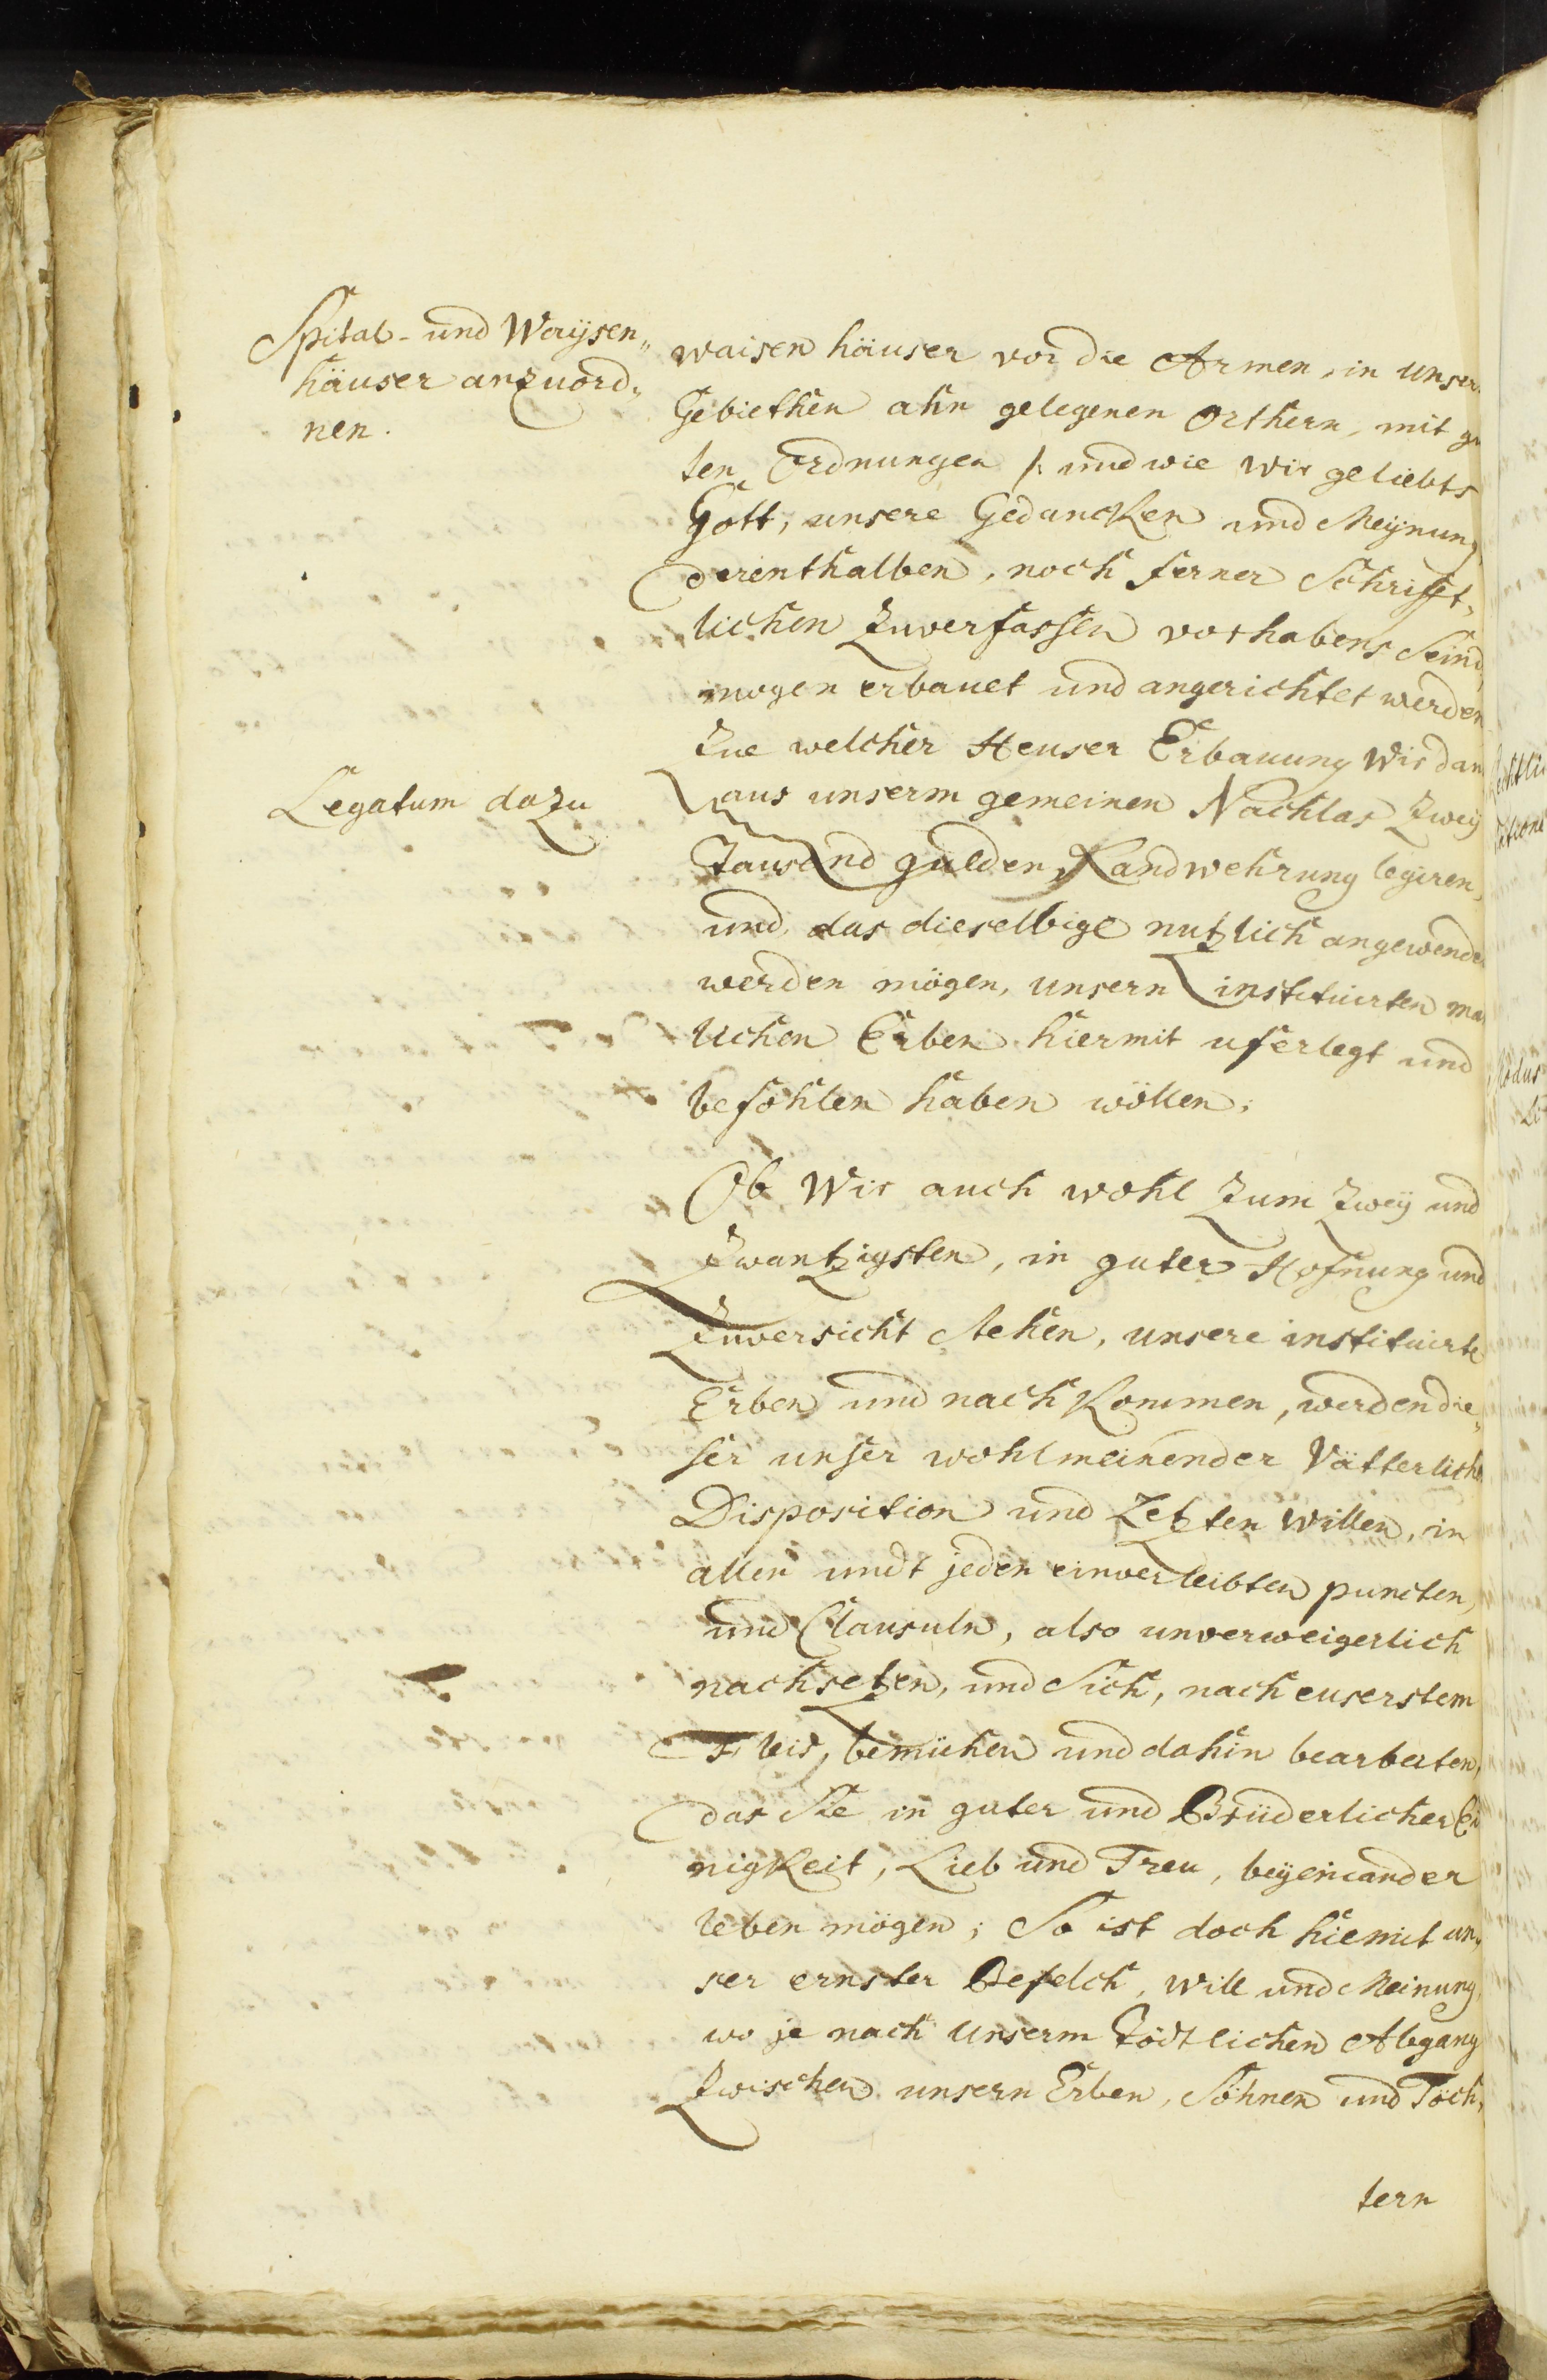 Spital- und Waÿsen„
häuser anzuord„
nen.
waisen häuser vor die Armen, in unser
Gebiethen ahn gelegenen Orthern, mit gu
ten Ordnungen /: und wie wir geliebts
Gott, unsere Gedancken und Meÿnung
derenthalben, noch ferner Schrifft„
lichen Zuverfassen vorhabens Seind,
mogen erbauet und angerichtet werden
Zue welcher Heuser Erbauung Wir dan
Legatum dazu
aus unserm gemeinen Nachlas Zweÿ
Tausend gülden, Landwehrung legiren,
und, das dieselbige nutzlich angewende
werden mögen, unsern instituirten ma
lichen Erben hiermit uferlegt und
befohlen haben wöllen;
Ob Wir auch wohl Zum Zweÿ und
Zwantzigsten, in guter Hofnung und
Zuversicht stehen, unsere instituirte
Erben und nach Kommen, werden die„
ser unser wohlmeinender Vätterliche
Disposition und Letzten Willen, in
allen undt jeden einverleibten puncten,
und Clausuln, also unverweigerlich
nachsetzen, und Sich, nach euserstem
Fleis, bemühen und dahin bearbeiten,
das Sie in guter und Brüderlicher Ei
nigkeit, Lieb und Treu, beÿeinander
leben mögen; So ist doch hiemit un„
ser ernster Befelch, will und Meinung,
wo je nach unserm Tödtlichen Abgang
Zwischen unsern Erben, Söhnen und Töch„
tern